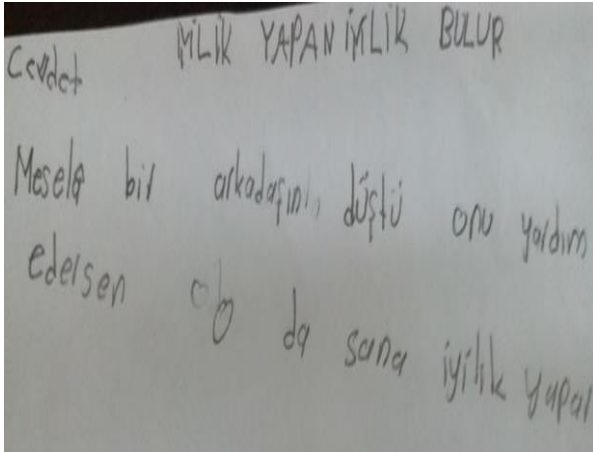 Cevdet İYİLİK YAPAN İYİLİK BULUR
Mesela bir arkadaşını, düştü onu yardım
edersen o da sana iyilik yapar